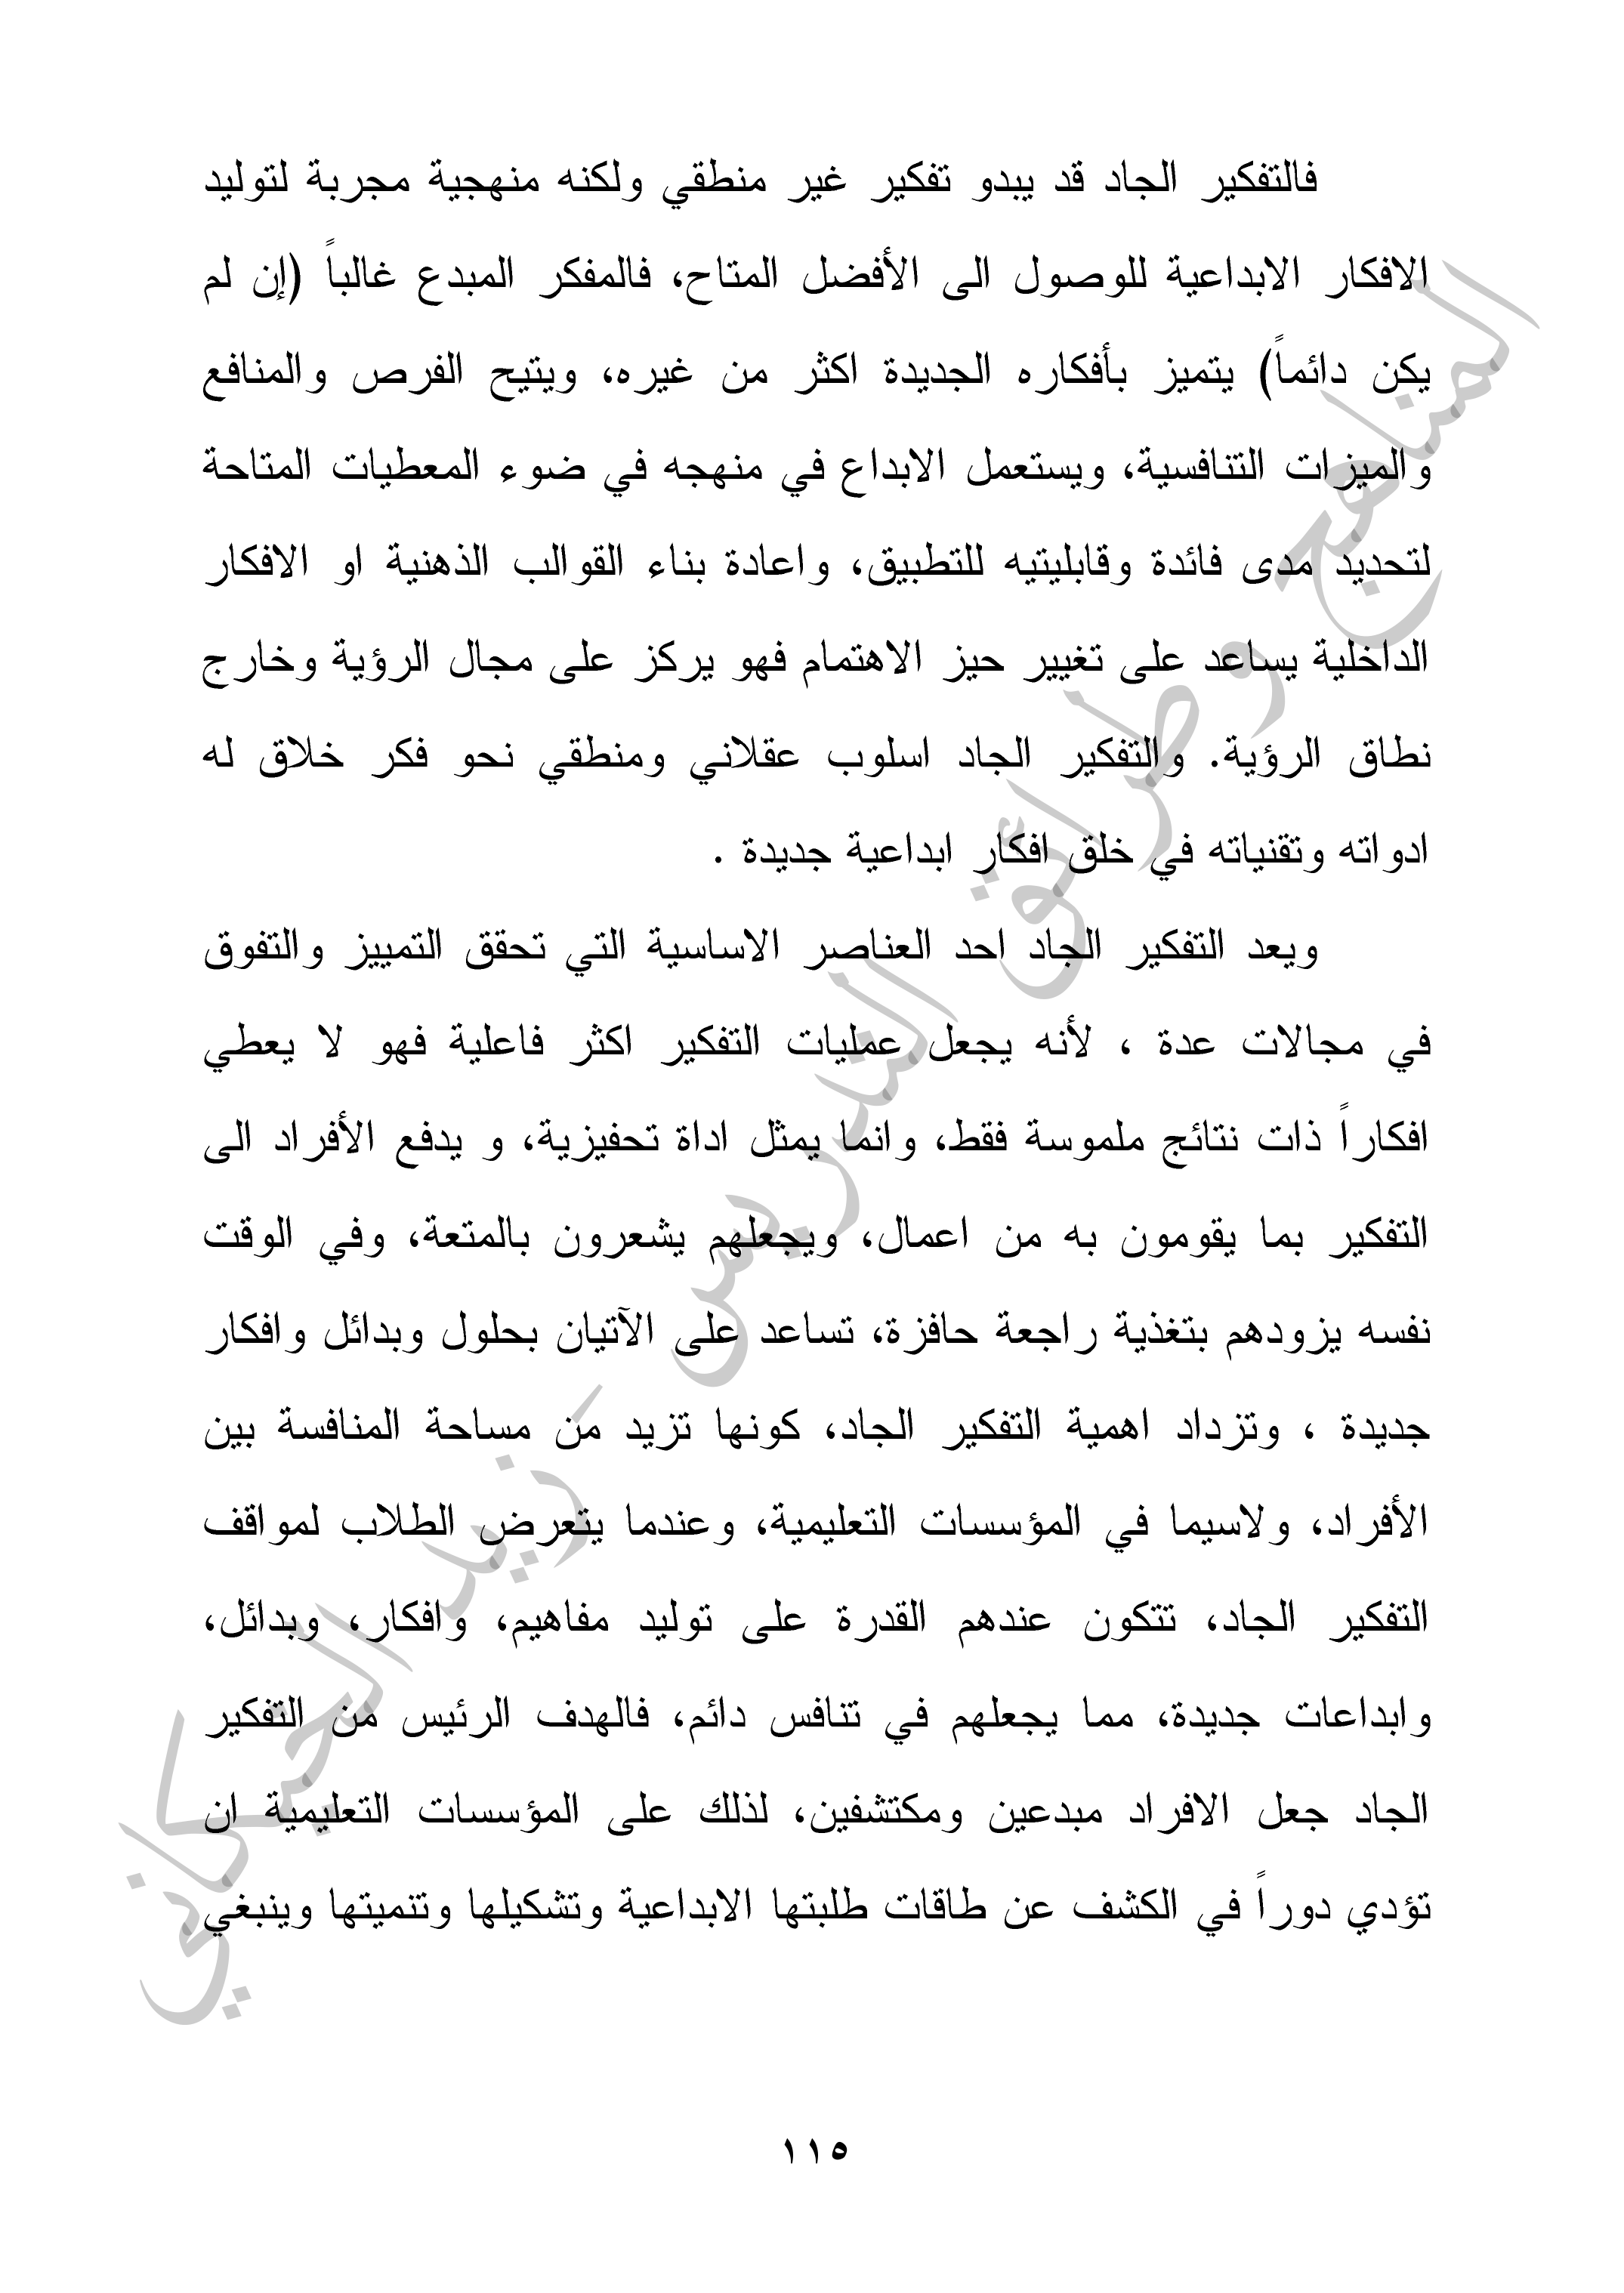 فالتفكير الجاد قد يبدو تفكير غير منطقي ولكنه منهجية مجربة لتوليد
الافكار الابداعية للوصول الى الأفضل المتاح، فالمفكر المبدع غالباً (إن لم
يكن دائماً) يتميز بأفكاره الجديدة اكثر من غيره، ويتيح الفرص والمنافع
والميزات التنافسية، ويستعمل الابداع في منهجه في ضوء المعطيات المتاحة
لتحديد مدى فائدة وقابليتيه للتطبيق، واعادة بناء القوالب الذهنية او الافكار
الداخلية يساعد على تغيير حيز الاهتمام فهو يركز على مجال الرؤية وخارج
نطاق الرؤية. والتفكير الجاد اسلوب عقلاني ومنطقي نحو فكر خلاق له
ادواته وتقنياته في خلق افكار ابداعية جديدة .
ويعد التفكير الجاد احد العناصر الاساسية التي تحقق التمييز والتفوق
في مجالات عدة ، لأنه يجعل عمليات التفكير اكثر فاعلية فهو لا يعطي
افكاراً ذات نتائج ملموسة فقط، وانما يمثل اداة تحفيزية، و يدفع الأفراد الى
التفكير بما يقومون به من اعمال، ويجعلهم يشعرون بالمتعة، وفي الوقت
نفسه يزودهم بتغذية راجعة حافزة، تساعد على الآتيان بحلول وبدائل وافكار
جديدة ، وتزداد اهمية التفكير الجاد، كونها تزيد من مساحة المنافسة بين
الأفراد، ولاسيما في المؤسسات التعليمية، وعندما يتعرض الطلاب لمواقف
التفكير الجاد، تتكون عندهم القدرة على توليد مفاهيم، وافكار، وبدائل،
وابداعات جديدة، مما يجعلهم في تنافس دائم، فالهدف الرئيس من التفكير
الجاد جعل الافراد مبدعين ومكتشفين، لذلك على المؤسسات التعليمية ان
تؤدي دوراً في الكشف عن طاقات طلبتها الابداعية وتشكيلها وتنميتها وينبغي
١١٥
المناهج وطرائق التدريس _ زيد الحيكاني